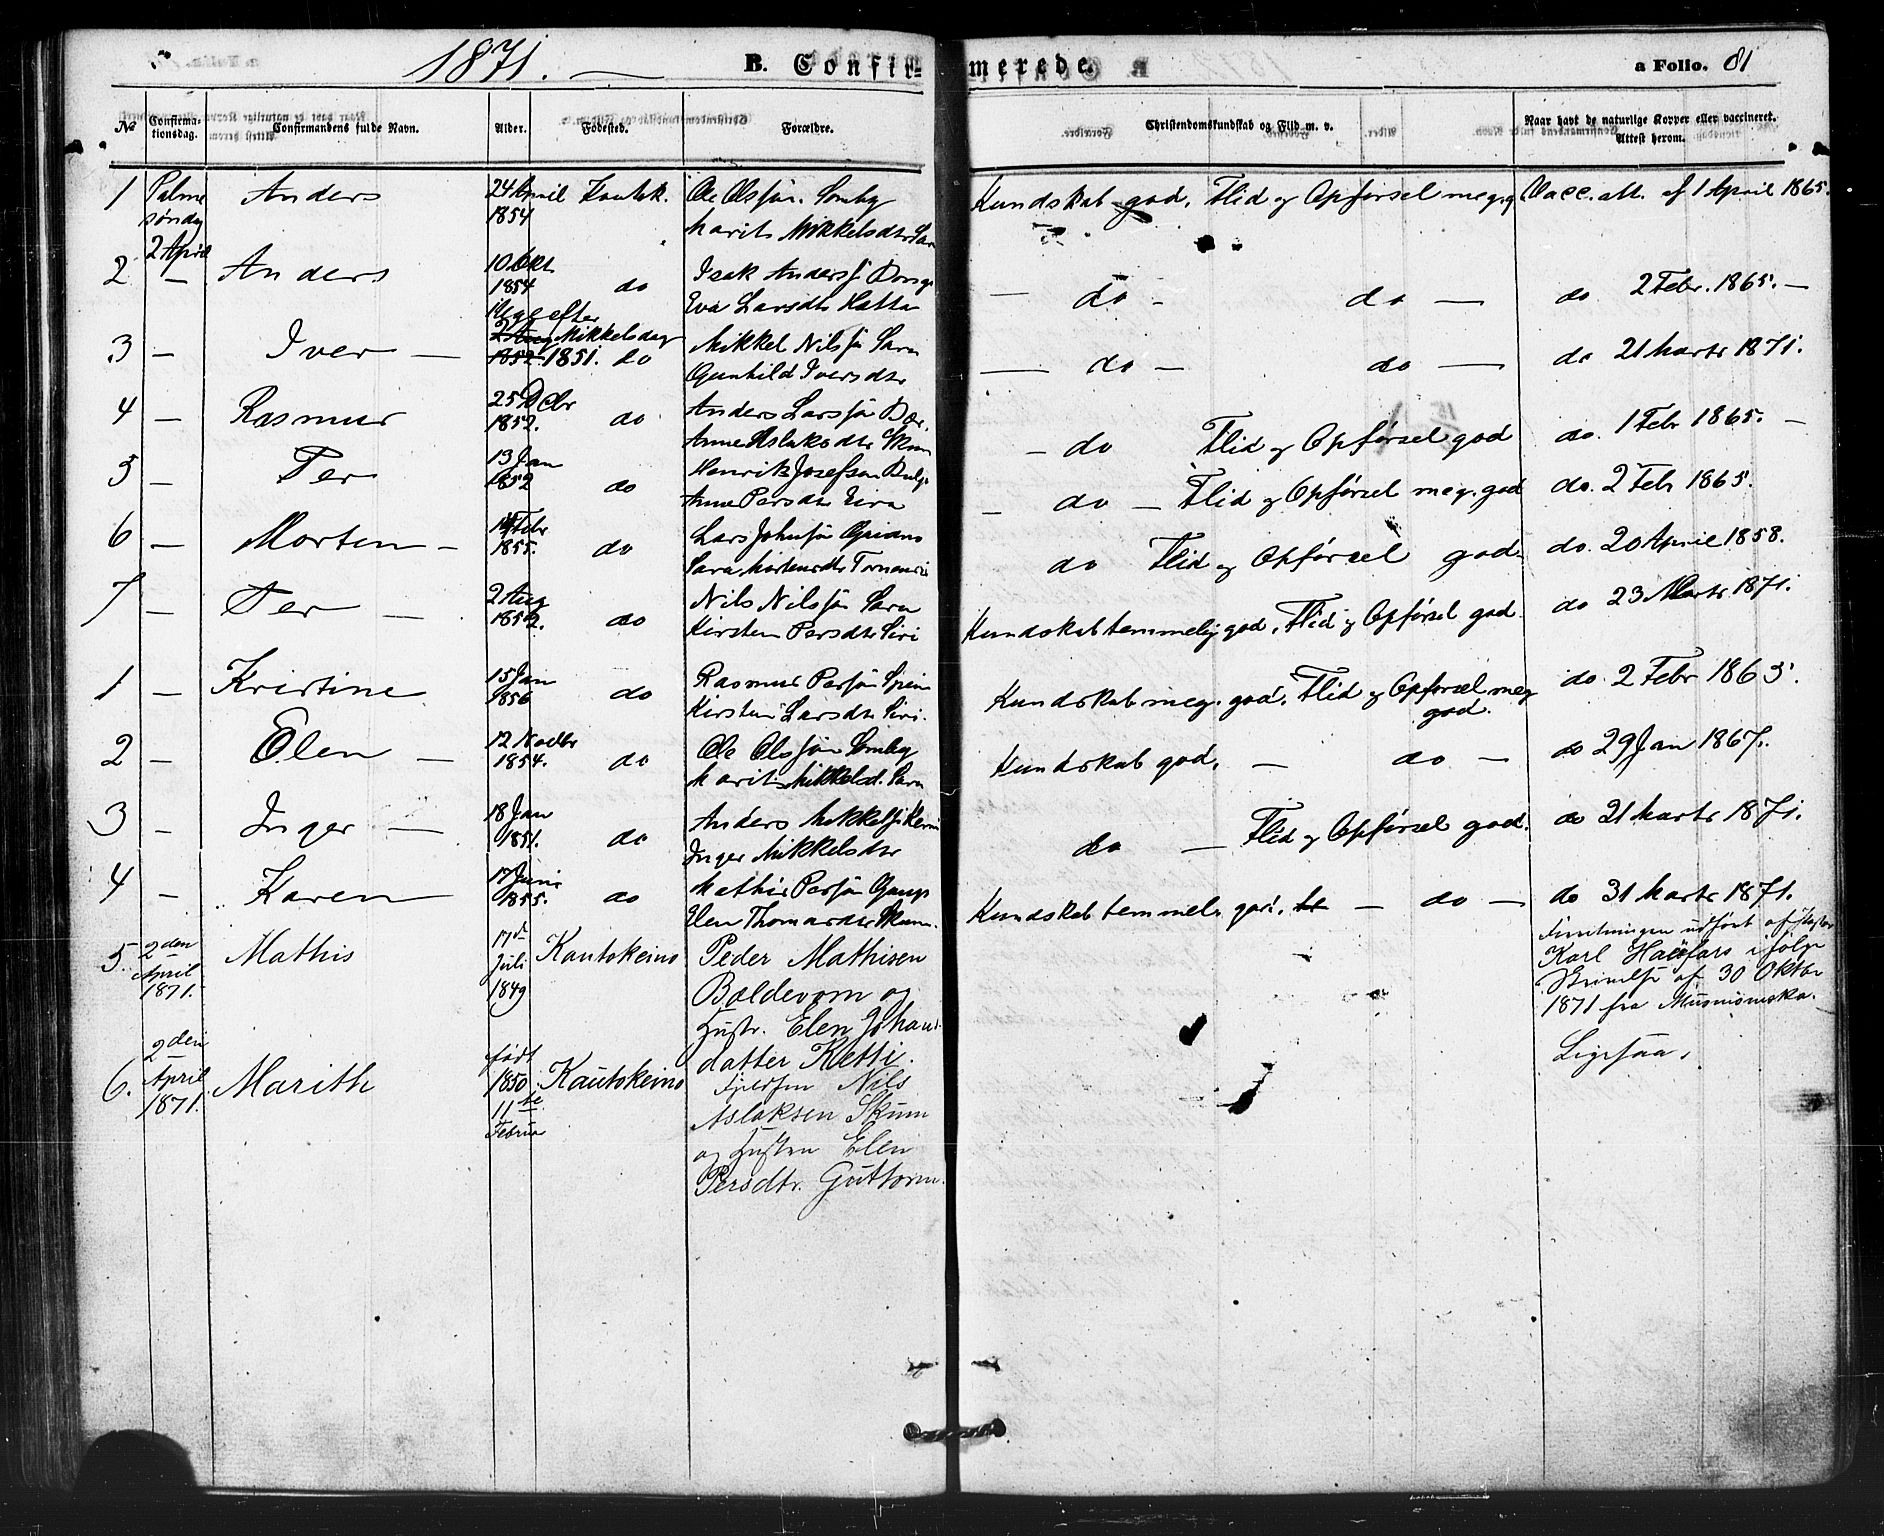 1871. — B. Confirmerede. a Folio. 81
No Confirmationsdag. Confirmandens fulde Navn. Alder. Fødested. Forældre. Christendomskundskab og Flid m. v. Naar havt de naturlige Kopper eller vaccineret. Attest herom.
1 Palmesøndag 2 April Anders 24 April 1854 Kautok. Ole Olssøn Somby
Marit Mikkelsdtr Sara Kundskab god, Flid og Opførsel meg. g Vacc. att. af 1 April 1865.
2 — Anders 10 Okt 1854 do Isak Anderss
Eva Larsdtr Hætta — do — do — do 2 Febr. 1865. —
3 — Iver — Uge efter Mikkelsdag 1851. do Mikkel Nilssøn Sara
Gunhild Iversdtr — do — do — do 21 Marts 1871.
4 — Rasmus 25 Decbr 1852. do Anders Larssøn Bær
Anne Aslaksdtr Skum — do Flid og Opførsel god do. 1 Febr 1865. —
5 — Per 13 Jan 1852 do Henrik Josefsen
Anne Persdtr Eira — do — Flid og Opførsel meg. god do. 2 Febr 1865.
6 — Morten — Febr 1855. do Lars Johnssøn
Sara Mortensdtr do Flid og Opførsel god do. 20 April 1858.
7 — Per — 2 Aug 1852. do Nils Nilssøn Sara
Kirsten Persdtr Siri Kundskab temmelig god, Flid og Opførsel god do 23 Marts 1871.
1 — Kristine 15 Jan 1856 do Rasmus Perssøn Spein
Kirsten Larsdtr Siri. Kundskab meg. god, Flid og Opførsel meg god. do. 2 Febr 1865.
2 — Elen — 12 Novbr 1854. do Ole Olssøn Somby
Marit Mikkelsd. Sara Kundskab god, — do — do 29 Jan 1867.
3 — Inger — 18 Jan 1851. do Anders Mikkelss
Inger Mikkelsdtr do — Flid og Opførsel god. do 21 Marts 1871.
4 — Karen — 17 Juni 1855. do Mathis Perssøn Gaup
Elen Thomasdtr Skum. Kundskab temmel. god. — do — do 31 Marts 1871.
5. 2den April 1871. Mathis 17de Juli 1849 Kautokeino Peder Mathisen
Baldevom og
Hustr. Elen Johans
datter Ketti. udført af
Karl i følge
af 30 Oktbr
1871 fra Muoniomska.
6. 2den April 1871. Marith født 1850 11te Februa Kautokeino Nils
Aslaksen Skum
og Hustru Elen
Persdtr. Guttorm. Ligesaa.